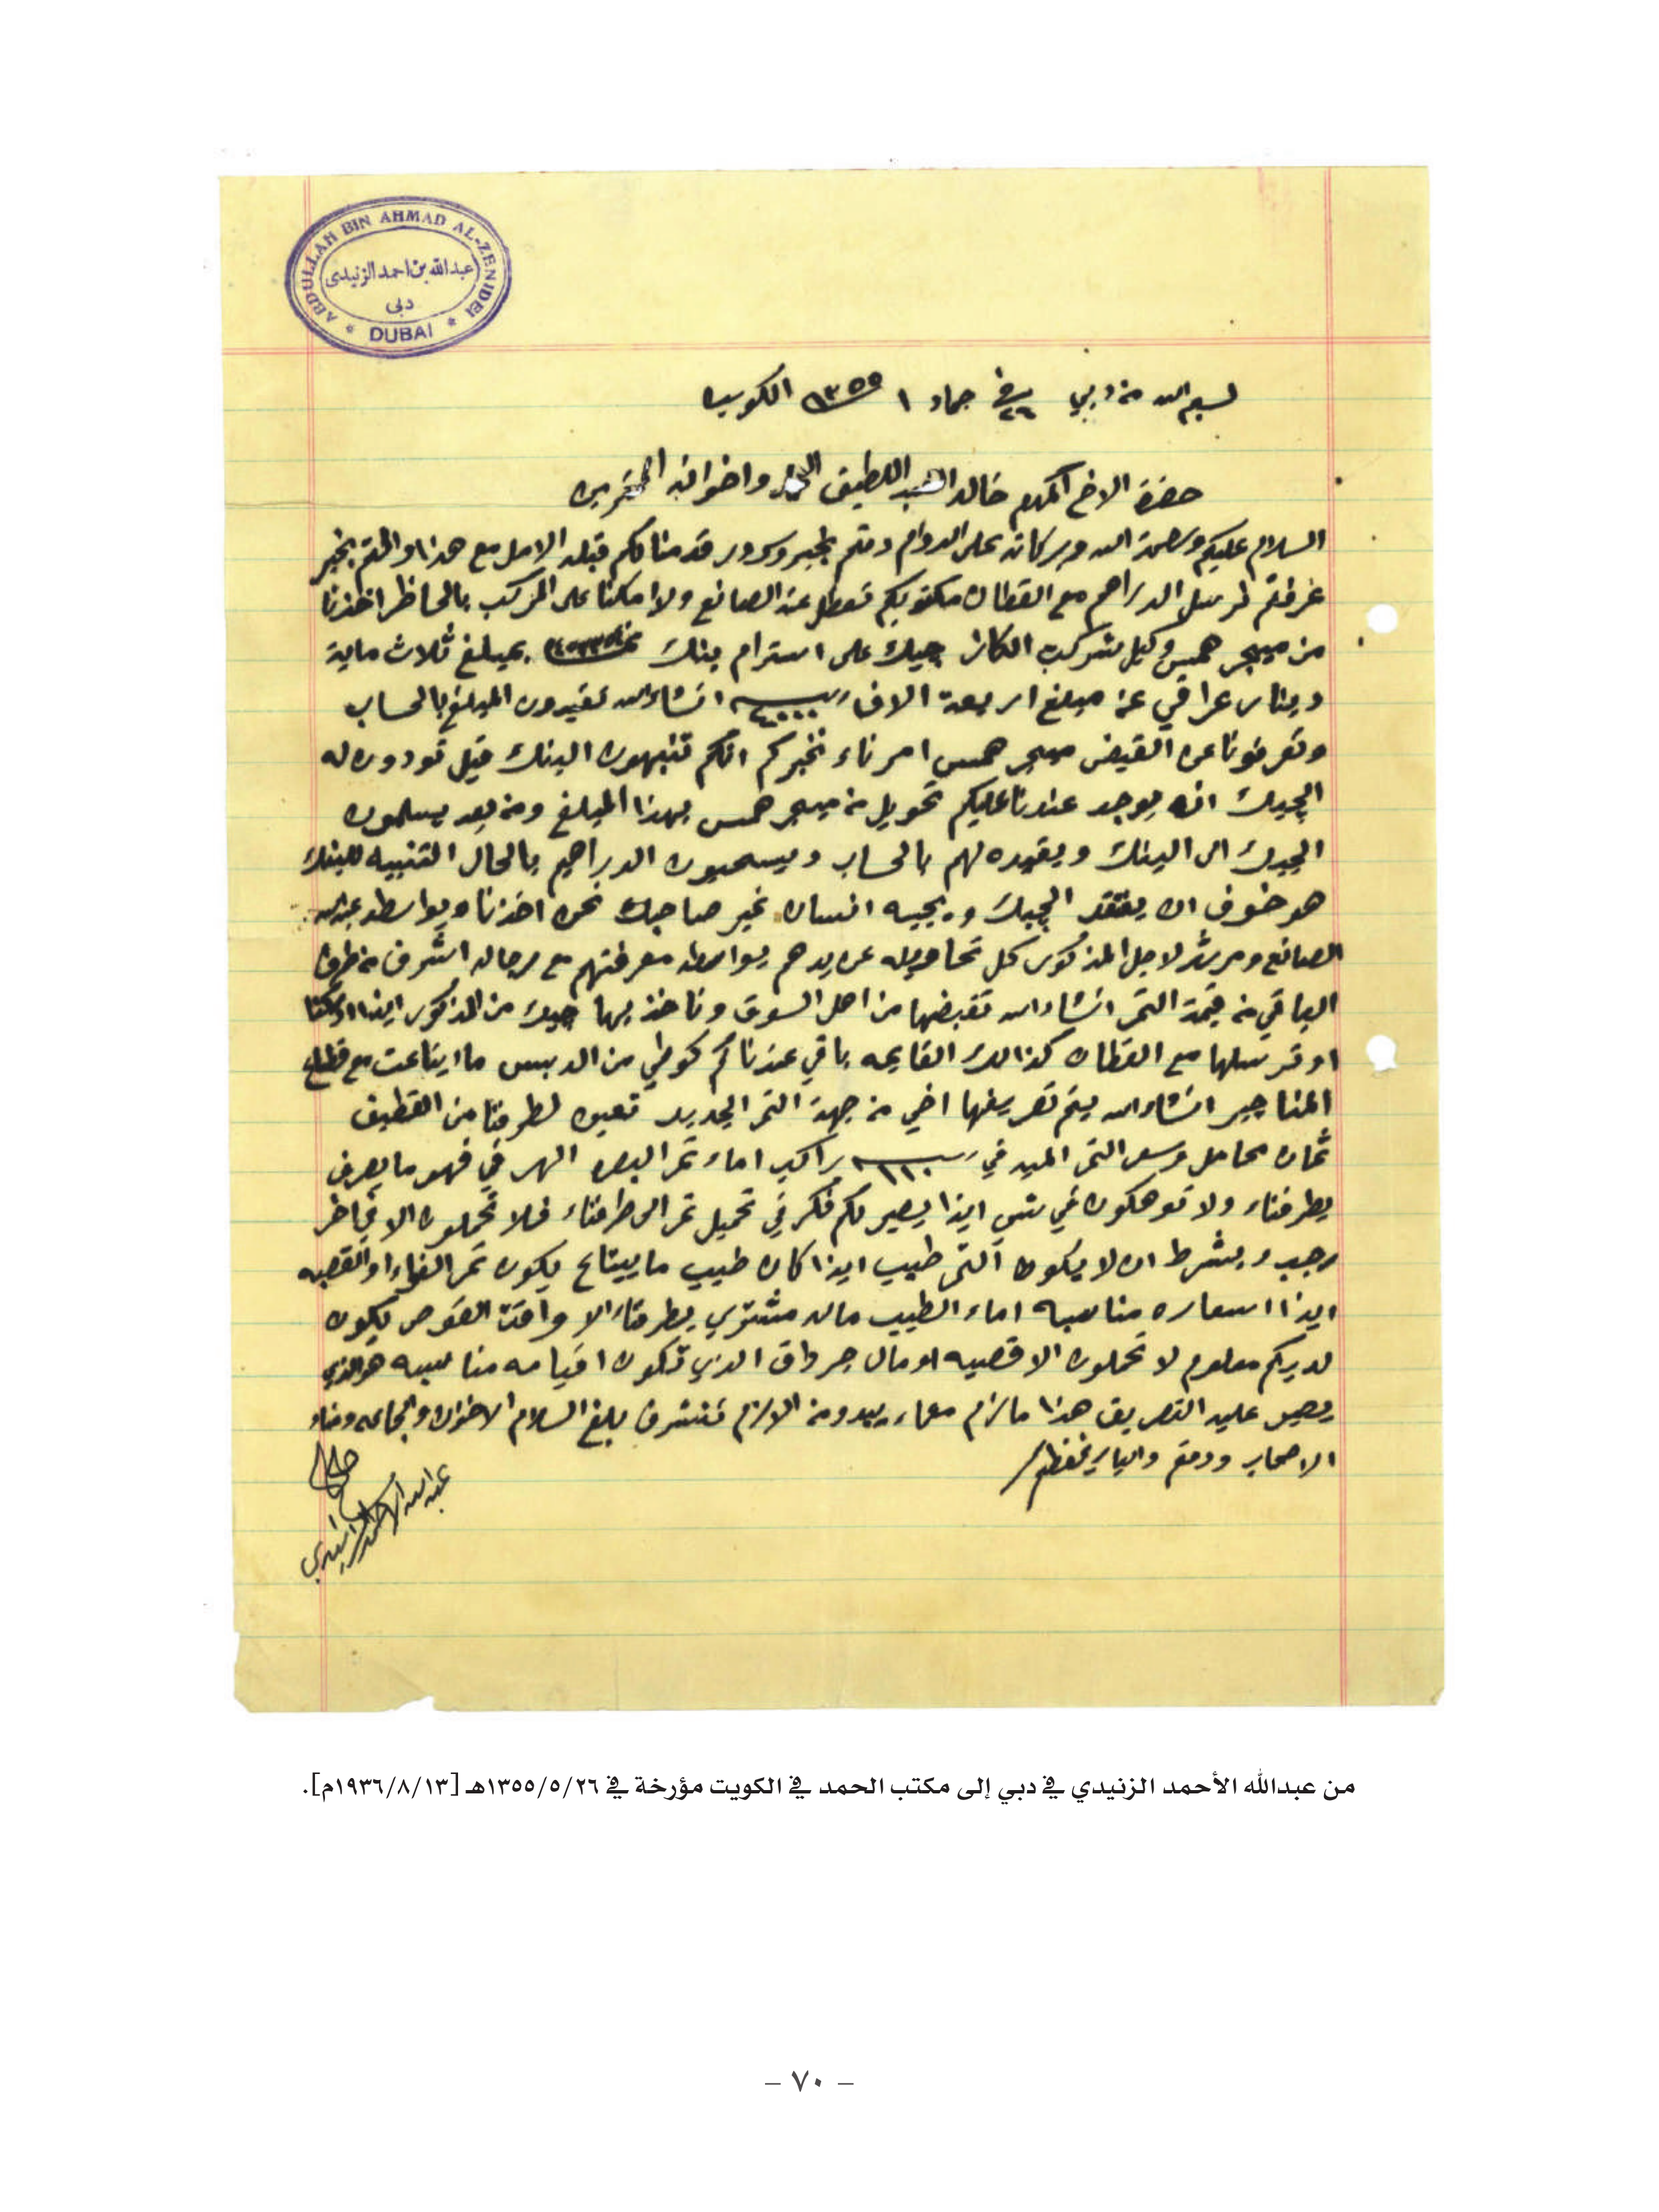 ABDULLAH BIN AHMAD AL-ZENIDEI
عبدالله بن احمد الزنيدي
دبى
* DUBAI *
بسم الله من دبي في ٢٦ جماد ١ ١٣٥٥ الكويت
حضرة الاخ المكرم خالد العبد اللطيف الحمد واخوانه المحترمين
السلام عليكم ورحمة الله وبركاته على الدوام دمتم بخير وسرور قدمنا لكم قبله الامل مع هذا والمتم بخير
عرفتم لرسل الدراهم مع القطان مكتوبكم تعطل عند الصانع ولا امكنا على المركب بالحاظر اخذنا
من ميجر همس وكيل شركت الكاز چيك على استرام بنك بمبلغ ثلاث ماية
دينار عراقي عن مبلغ اربعة الاف ربية ٤٠٠٠ انشاء الله تقيدون المبلغ بالحساب
وتعرفونا عن القبض ميجر همس امرناء نخبركم انكم تنبهون البنك قبل تودون له
الچيك انه يوجد عندنا عليكم تحويل من ميجر همس بهذا المبلغ ومن بعد يسلمون
الچيك الى البنك ويقيده لهم بالحساب ويسحبون الدراهم بالحال التنبيه للبنك
هو خوف ان يفتقد الچيك ويجيبه انسان غير صاحبك نحن اخذنا وبواسطه عبدالله
الصانع ومرشد لاجل المذكور كل تحاويله عن يدهم بواسطه معرفتهم مع رجاله اشرف من طرف
الباقي من قيمة التمر انشاء الله نقبضها من اهل السوق وناخذ بها چيك من المذكور ايذا امكنا
او نرسلها مع القطان كذالك القايمه باقي عندنا كم كوطي من الدبس ما ابتاعت مع قطع
المناجير انشاء الله يتم تصريفها اخي من جهة التمر الجديد تعبون لطرفنا من القطيف
ثمان محامل وسعر التمر الميد في ربية ١١٠ راكب اماء تمر البصره الهر في فهو ما يصرف
بطرفناء ولا توهكون في شي ايذا يصير لكم فكر في تحميل تمر الى طرفناء فلا تحملون الا في اخر
رجب وبشرط ان لا يكون التمر طيب ايذا كان طيب ما يبتاع يكون تمر الفاء او القصبه
ايذا اسعاره مناسبه اماء الطيب ماله مشتري بطرفناء الا واقت الغوص يكون
لديكم معلوم لا تحملون الا قصبه او مال الذي تكون اقيامه مناسبه هو الذي
يصير عليه التصريف هذا ما لزم معماء يبدو من الازم نتشرف بلغ السلام الاخوان والجماعه وخاء
الاصحاب ودمتم والباري يحفظكم
عبدالله الاحمد الزنيدي
من عبدالله الأحمد الزنيدي في دبي إلى مكتب الحمد في الكويت مؤرخة في ١٣٥٥/٥/٢٦هـ [١٩٣٦/٨/١٣م].
– ٧٠ –